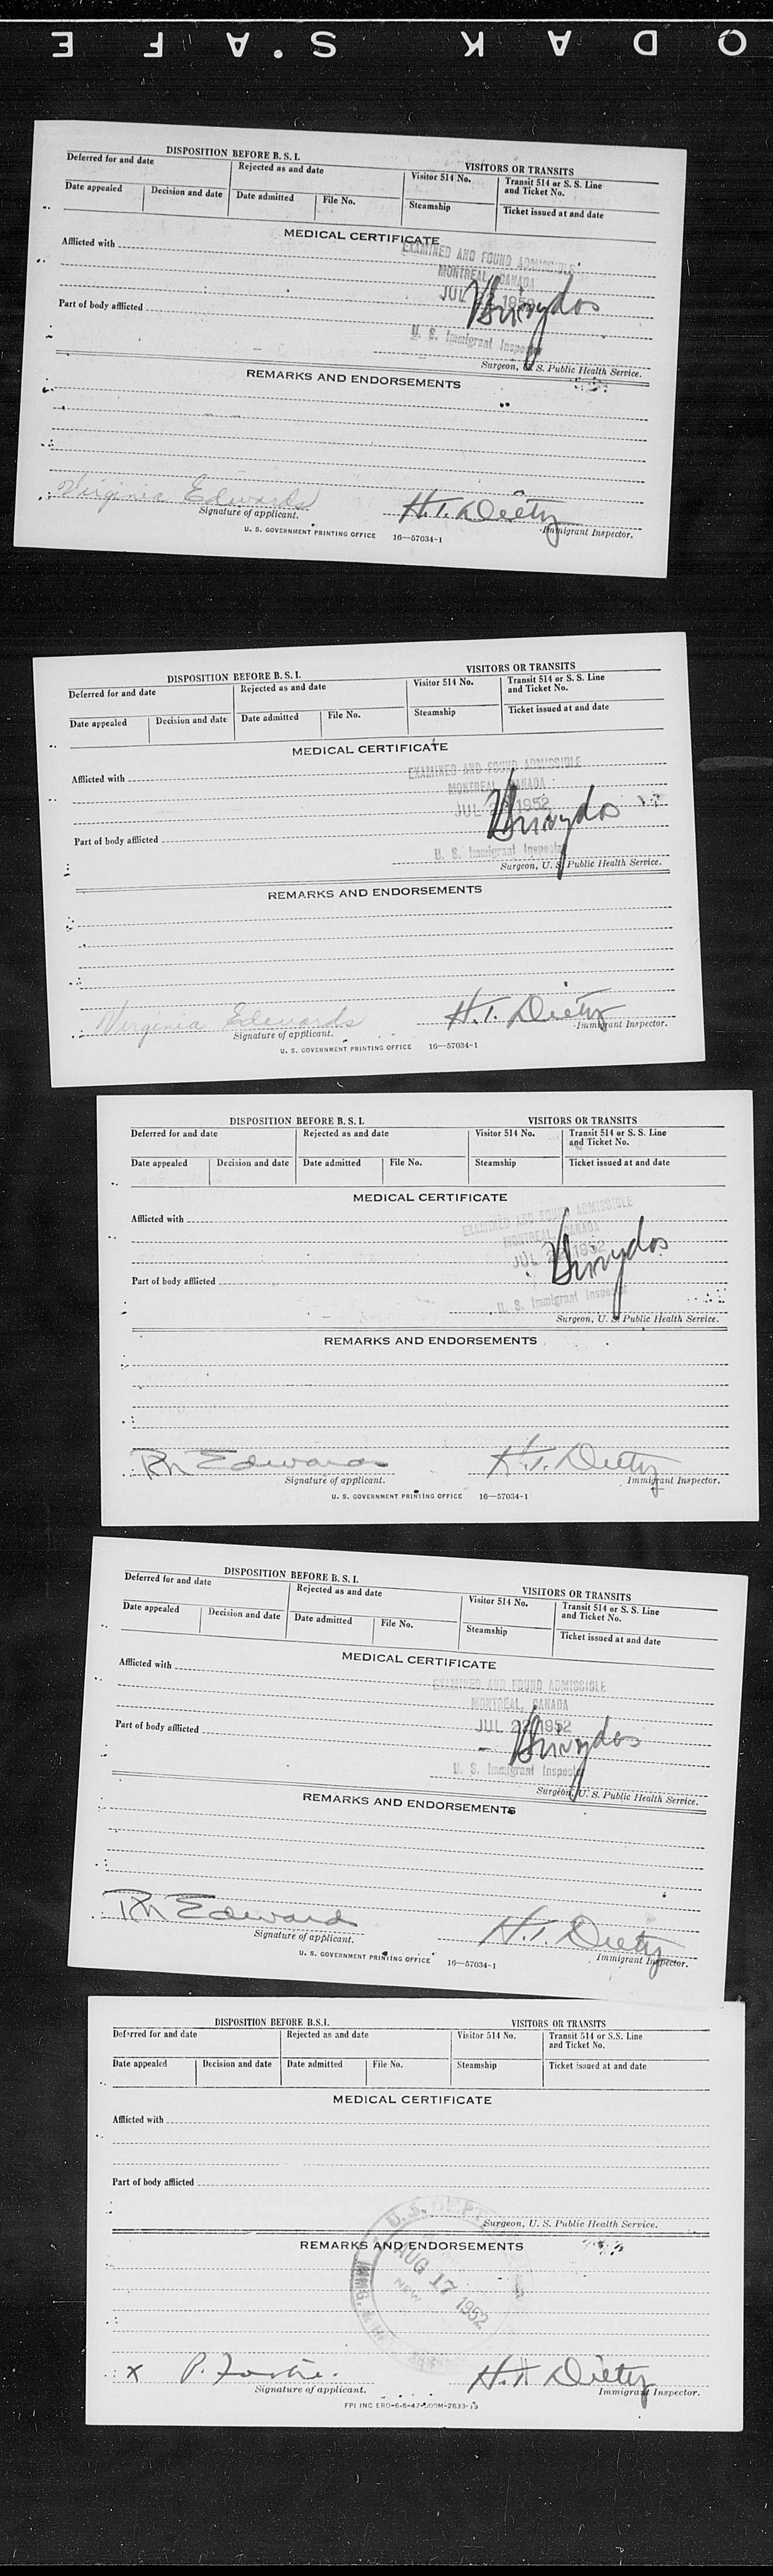 KODAK S.A F E
DISPOSITION BEFORE B. S. I.
VISITORS OR TRANSITS
Deferred for and date
Rejected as and date
Visitor 514 No.
Transit 514 or S. S. Line and Ticket No.
Date appealed
Decision and date
Date admitted
File No.
Steamship
Ticket issued at and date
MEDICAL CERTIFICATE
Afflicted with
EXAMINED AND FOUND ADMISSIBLE
MONTREAL, CANADA
JUL 1952
Part of body afflicted
U. S. Immigrant Inspector
Surgeon, U. S. Public Health Service.
REMARKS AND ENDORSEMENTS
Virginia Edwards
H.T. Dietz
Signature of applicant.
Immigrant Inspector.
U. S. GOVERNMENT PRINTING OFFICE 16—57034-1
DISPOSITION BEFORE B. S. I.
VISITORS OR TRANSITS
Deferred for and date
Rejected as and date
Visitor 514 No.
Transit 514 or S. S. Line and Ticket No.
Date appealed
Decision and date
Date admitted
File No.
Steamship
Ticket issued at and date
MEDICAL CERTIFICATE
Afflicted with
EXAMINED AND FOUND ADMISSIBLE
MONTREAL, CANADA
JUL 1952
Part of body afflicted
U. S. Immigrant Inspector
Surgeon, U. S. Public Health Service.
REMARKS AND ENDORSEMENTS
Virginia Edwards
H.T. Dietz
Signature of applicant.
Immigrant Inspector.
U. S. GOVERNMENT PRINTING OFFICE 16—57034-1
DISPOSITION BEFORE B. S. I.
VISITORS OR TRANSITS
Deferred for and date
Rejected as and date
Visitor 514 No.
Transit 514 or S. S. Line and Ticket No.
Date appealed
Decision and date
Date admitted
File No.
Steamship
Ticket issued at and date
MEDICAL CERTIFICATE
Afflicted with
EXAMINED AND FOUND ADMISSIBLE
MONTREAL, CANADA
JUL 22 1952
Part of body afflicted
U. S. Immigrant Inspector
Surgeon, U. S. Public Health Service.
REMARKS AND ENDORSEMENTS
Edwards
H.T. Dietz
Signature of applicant.
Immigrant Inspector.
U. S. GOVERNMENT PRINTING OFFICE 16—57034-1
DISPOSITION BEFORE B. S. I.
VISITORS OR TRANSITS
Deferred for and date
Rejected as and date
Visitor 514 No.
Transit 514 or S. S. Line and Ticket No.
Date appealed
Decision and date
Date admitted
File No.
Steamship
Ticket issued at and date
MEDICAL CERTIFICATE
Afflicted with
EXAMINED AND FOUND ADMISSIBLE
MONTREAL, CANADA
JUL 22 1952
Part of body afflicted
U. S. Immigrant Inspector
Surgeon, U. S. Public Health Service.
REMARKS AND ENDORSEMENTS
Edward
H.T. Dietz
Signature of applicant.
Immigrant Inspector.
U. S. GOVERNMENT PRINTING OFFICE 16—57034-1
DISPOSITION BEFORE B.S.I.
VISITORS OR TRANSITS
Deferred for and date
Rejected as and date
Visitor 514 No.
Transit 514 or S.S. Line and Ticket No.
Date appealed
Decision and date
Date admitted
File No.
Steamship
Ticket issued at and date
MEDICAL CERTIFICATE
Afflicted with
Part of body afflicted
U.S. DEPT
Surgeon, U. S. Public Health Service.
REMARKS AND ENDORSEMENTS
AUG 17 1952
x P.
H.T. Dietz
Signature of applicant.
Immigrant Inspector.